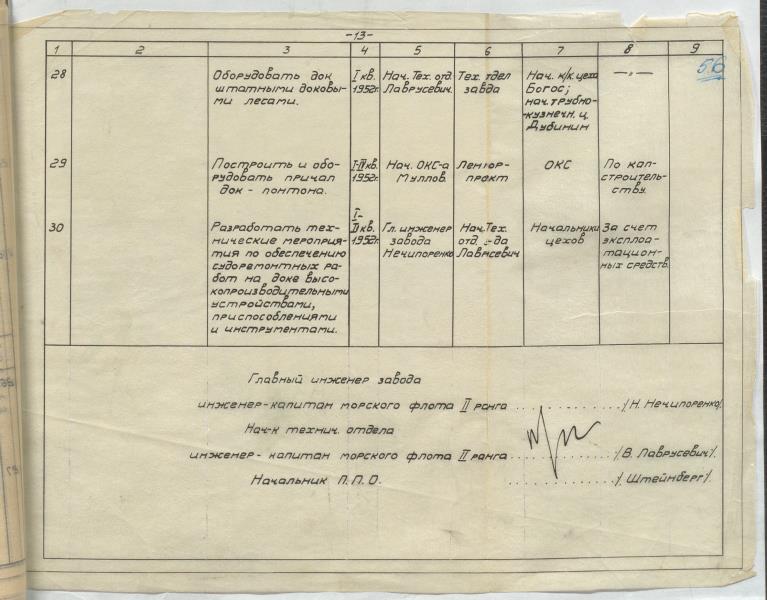 -13-
1 2 3 4 5 6 7 8 9
56
28 Оборудовать док штатными доковы-ми лесами. I кв. 1952г. Нач. Тех. отд. Лаврусевич. Тех. тдел завда Нач. к/к. цеха Богос; нач. трубно-кузнечн. ц. Дубинин —„—
29 Построить и обо-рудовать причал док-понтона. I-IV кв. 1952г. Нач. ОКС-а Муллов. Ленгор-проект ОКС По кап-строитель-ству.
30 Разработать тех-нические мероприя-тия по обеспечению судоремонтных ра-бот на доке высо-копроизводительными устройствами, приспособлениями и инструментами. I-II кв. 1952г. Гл. инженер завода Нечипоренко Нач. Тех. отд. з-да Лаврусевич Начальники цехов За счет эксплоа-тацион-ных средств.
Главный инженер завода
инженер-капитан морского флота II ранга .............. /Н. Нечипоренко/.
Нач-к технич. отдела
инженер-капитан морского флота II ранга .............. /В. Лаврусевич/.
Начальник П.П.О. .............. /Штейнберг/.